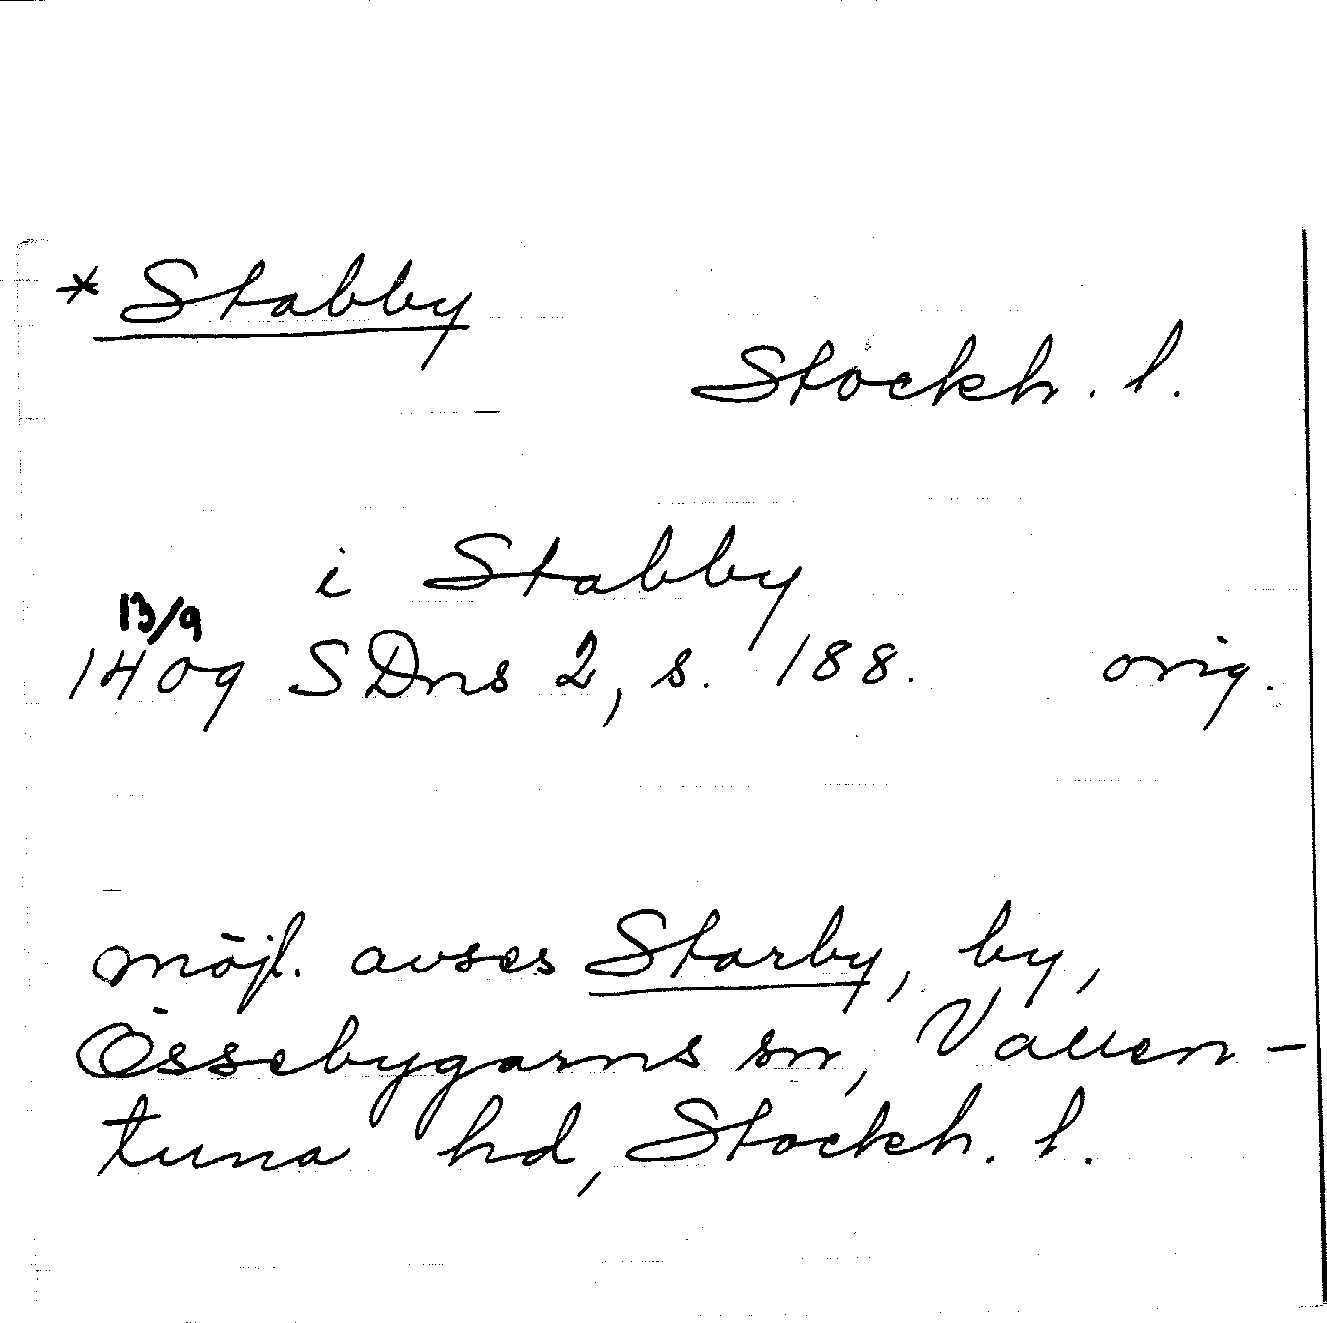 * Stabby
Stockh. l.
i Stabby
13/9
1409 SDns 2, s. 188. orig.
möjl. avses Starby, by,
Össebygarns sn, Vallen-
tuna hd, Stockh. l.